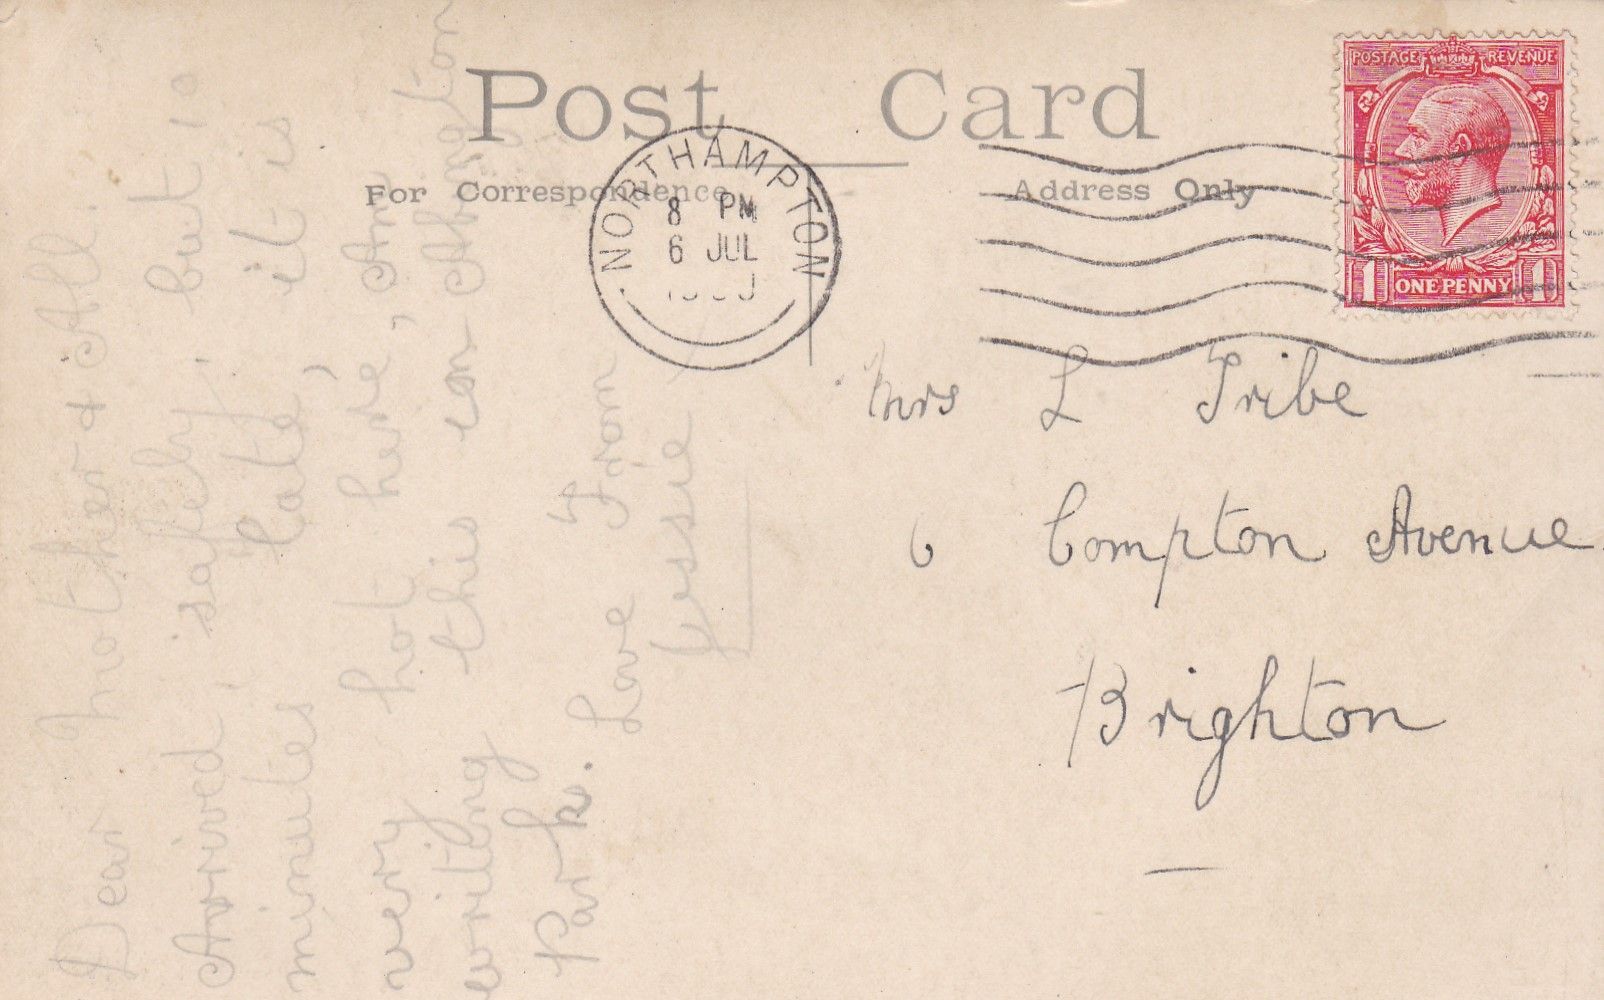 Post Card
For Correspondence
Address Only
NORTHAMPTON
8 PM
6 JUL
POSTAGE REVENUE
1 ONE PENNY 1
Dear Mother & All.
Arrived safely. but 10
minutes "late", it is
very hot here, Am
writing this on Abington
Park. Love From
Jessie
Mrs L Tribe
6 Compton Avenue
Brighton